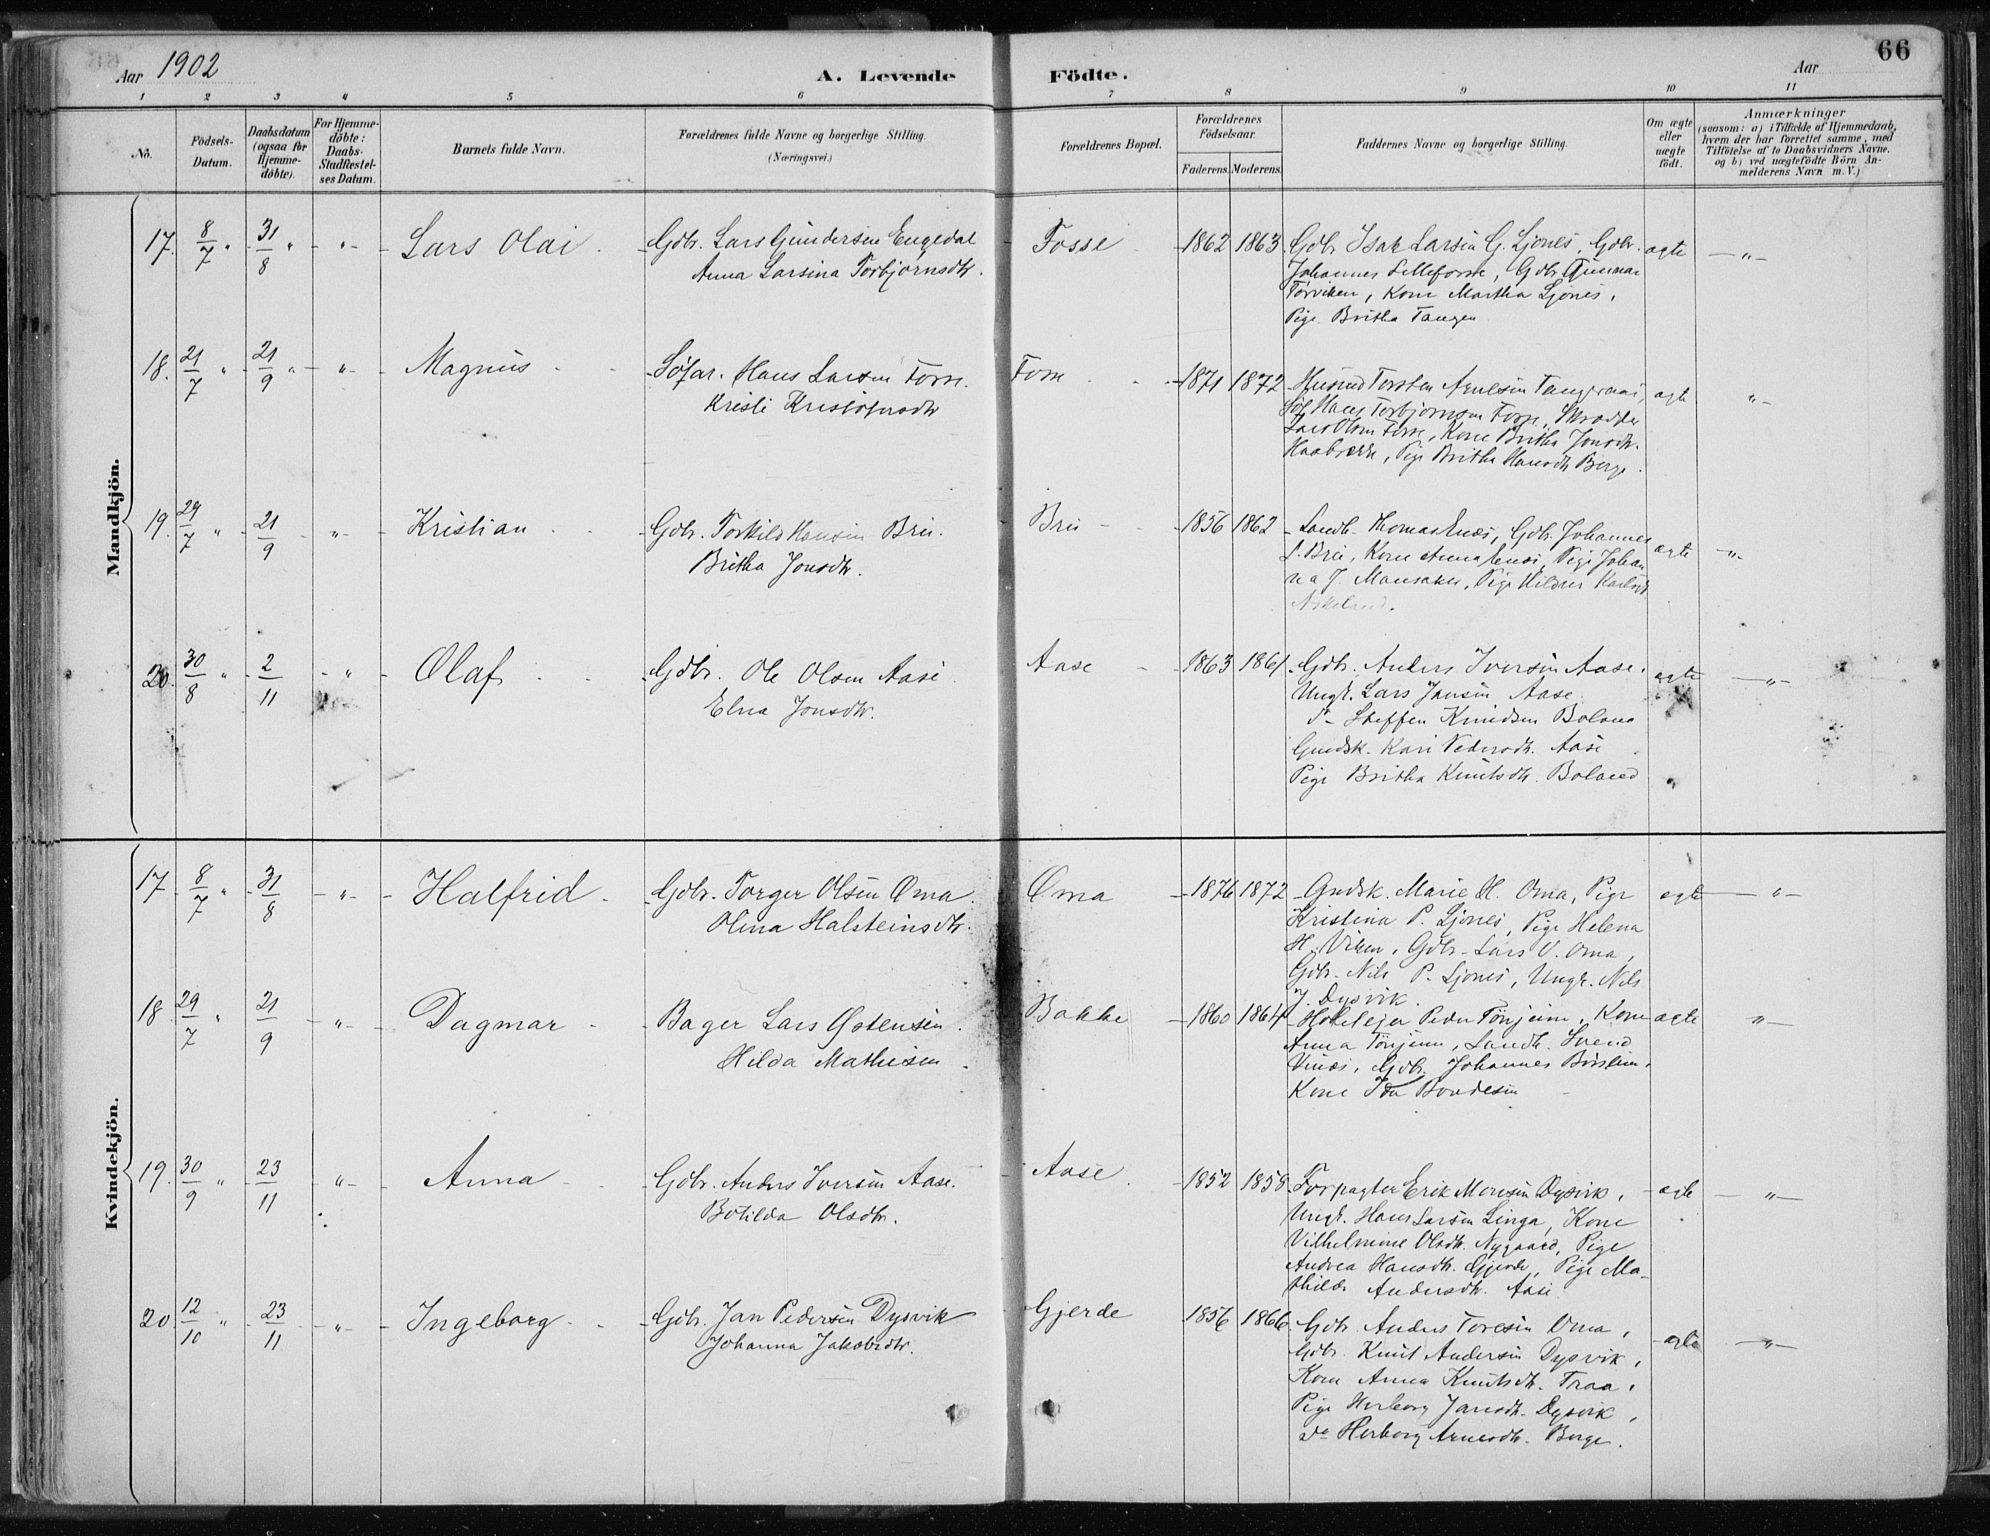 66
Aar 1902
A. Levende
Födte.
Aar
1 2 3 4 5 6 7 8 9 10 11
No.
Födsels-Datum.
Daabsdatum (ogsaa for Hjemme-döbte).
For Hjemme-döbte: Daabs-Stadfæstel-ses Datum.
Barnets fulde Navn.
Forældrenes fulde Navne og borgerlige Stilling.
(Næringsvei.)
Forældrenes Bopæl.
Forældrenes Födselsaar.
Faderens. Moderens.
Faddernes Navne og borgerlige Stilling.
Om ægte eller uægte födt.
Anmærkninger
(saasom: a) i Tilfælde af Hjemmedaab,
hvem der har forrettet samme, med
Tilföielse af to Daabsvidners Navne.
og b) ved uægtefödte Börn An-
melderens Navn m. V.)
Mandkjön.
17. 8/7 " 31/8 " - " - Lars Olai - Gdbr. Lars Gundersen Engedal
Anna Larsina Torbjørnsdtr.
Fosse 1862 1863 Gdbr Isak Larsen G. Ljones, Gdbr. ægte - " -
Johannes Lilleforse, Gdbr Gunnar
Tørviken, Kone Martha Ljones,
Pige Britha Tangen
18. 21/7 " 21/9 " - " - Magnus - Søfar. Hans Larsen Fosse.
Kristi Kristofersdtr
Fosse 1871 1872 Husmd Torsten Tangeraas, ægte " -
Søf Hans Torbjørnsen Fosse, Skrædder
Lars Olsen Fosse, Kone Britha Jonsdtr.
Haabrekke, Pige Britha Hansdtr Berge.
19. 29/7 " 21/9 - " - Kristian - Gdbr. Torkild Hansen Bru.
Britha Jonsdtr.
Bru 1856 1862 Landh. Thomas Vinæs, Gdbr. Johannes ægte - " -
Bru, Kone Anna Vinæs, Pige Johan
na J. Mansaker, Pige Karlsdtr
Askeland.
20. 30/8 " 2/11 - " - Olaf - Gdbr. Ole Olsen Aase
Elna Jonsdtr.
Aase 1863 1861 Gdbr. Anders Iversen Aase, ægte - " -
Ungk. Lars Jansen Aase
Steffen Knudsen Boland
Gmdsk. Kari Pedersdtr. Aase
Pige Britha Knutsdtr. Boland
Kvindekjön.
17 8/7 " 31/8 - " - Halfrid - Gdbr. Torger Olsen Oma.
Olina Halsteinsdtr.
Oma 1876 1872 Gmdsk. Marie H. Oma, Pige ægte - " -
Kristina P. Ljones, Pige Helena
H. Viken, Gdbr. Lars V. Oma,
Gdbr. Nils P. Ljones, Ungk. Nils
J. Dysvik.
18 29/7 " 21/9 - " - Dagmar - Bager Lars Østensen
Hilda Mathisen
Bakke 1860 1864 Hoteleier Peder Tönjum, Kone ægte " -
Anna Tönjum, Landh. Svend
Vinæs, Gdbr. Johannes Børsheim,
Kone Ida Bondesen
19. 30/9 " 23/11 " - Anna - Gdbr. Anders Iversen Aase.
Botilda Olsdtr.
Aase 1852 1858 Forpagter Erik Monsen Dysvik, ægte - " -
Ungk. Hans Larsen Linga, Kone
Vilhelmine Olsdtr. Nygaard, Pige
Andrea Hansdtr. Gjerde, Pige Ma-
thilde Andersdtr. Aase
20 12/10 " 23/11 - " - Ingeborg - Gdbr. Jan Pedersen Dysvik
Johanna Jakobsdtr.
Gjerde 1856 1866 Gdbr. Anders Toresen Oma, ægte - " -
Gdbr. Knut Andersen Dysvik,
Kone Anna Knutsdtr. Traa,
Pige Herborg Jansdtr. Dysvik,
Do Herborg Arnesdtr. Berge.